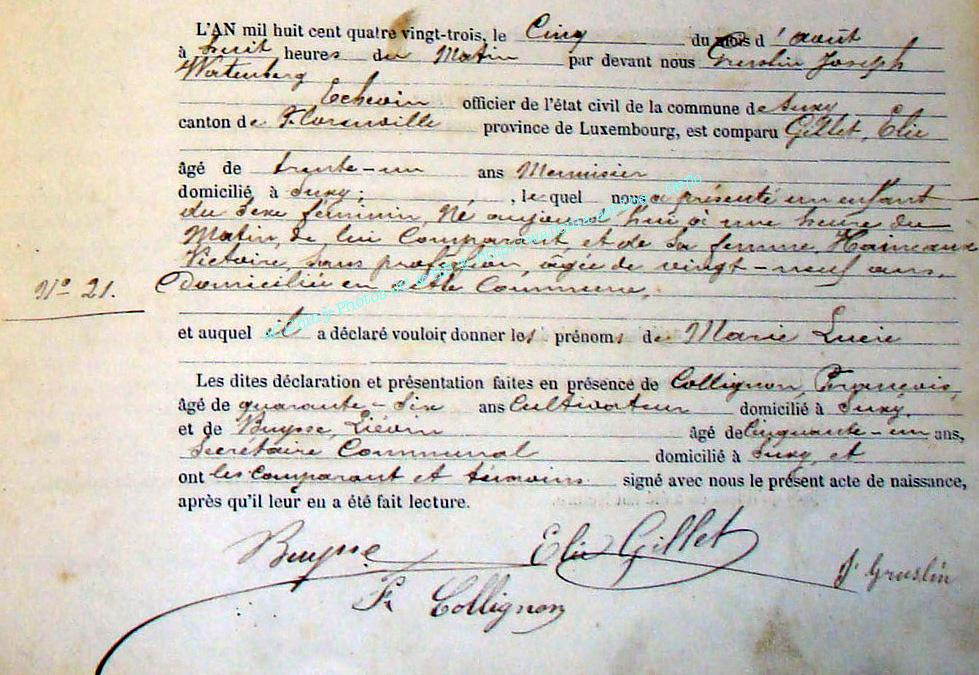 L'AN mil huit cent quatre vingt-trois, le Cinq du mois d'août
à huit heures du Matin par devant nous Gruslin Joseph
Echevin officier de l'état civil de la commune de Suxy
canton de Florenville province de Luxembourg, est comparu Gillet, Elie
âgé de trente-un ans Menuisier
domicilié à Suxy; , lequel nous a présenté un enfant
du sexe féminin, Né aujourd'hui à une heure du
Matin, de lui Comparant et de sa femme,
Victoire, sans profession, âgée de vingt-neuf ans,
N° 21. Domiciliée en cette Commune,
et auquel il a déclaré vouloir donner les prénoms de Marie Lucie
Les dites déclaration et présentation faites en présence de Collignon, François,
âgé de quarante-six ans Cultivateur domicilié à Suxy,
et de Buysse, Liévin âgé de Cinquante-un ans,
Secrétaire Communal domicilié à Suxy, et
ont les comparant et témoins signé avec nous le présent acte de naissance,
après qu'il leur en a été fait lecture.
Buysse Elie Gillet J Gruslin
F. Collignon